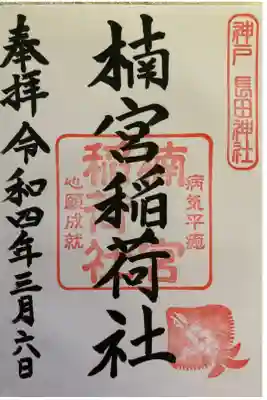 神戸 長田神社
楠宮稲荷社
楠宮
稲荷社
病気平癒
心願成就
奉拝 令和四年三月六日